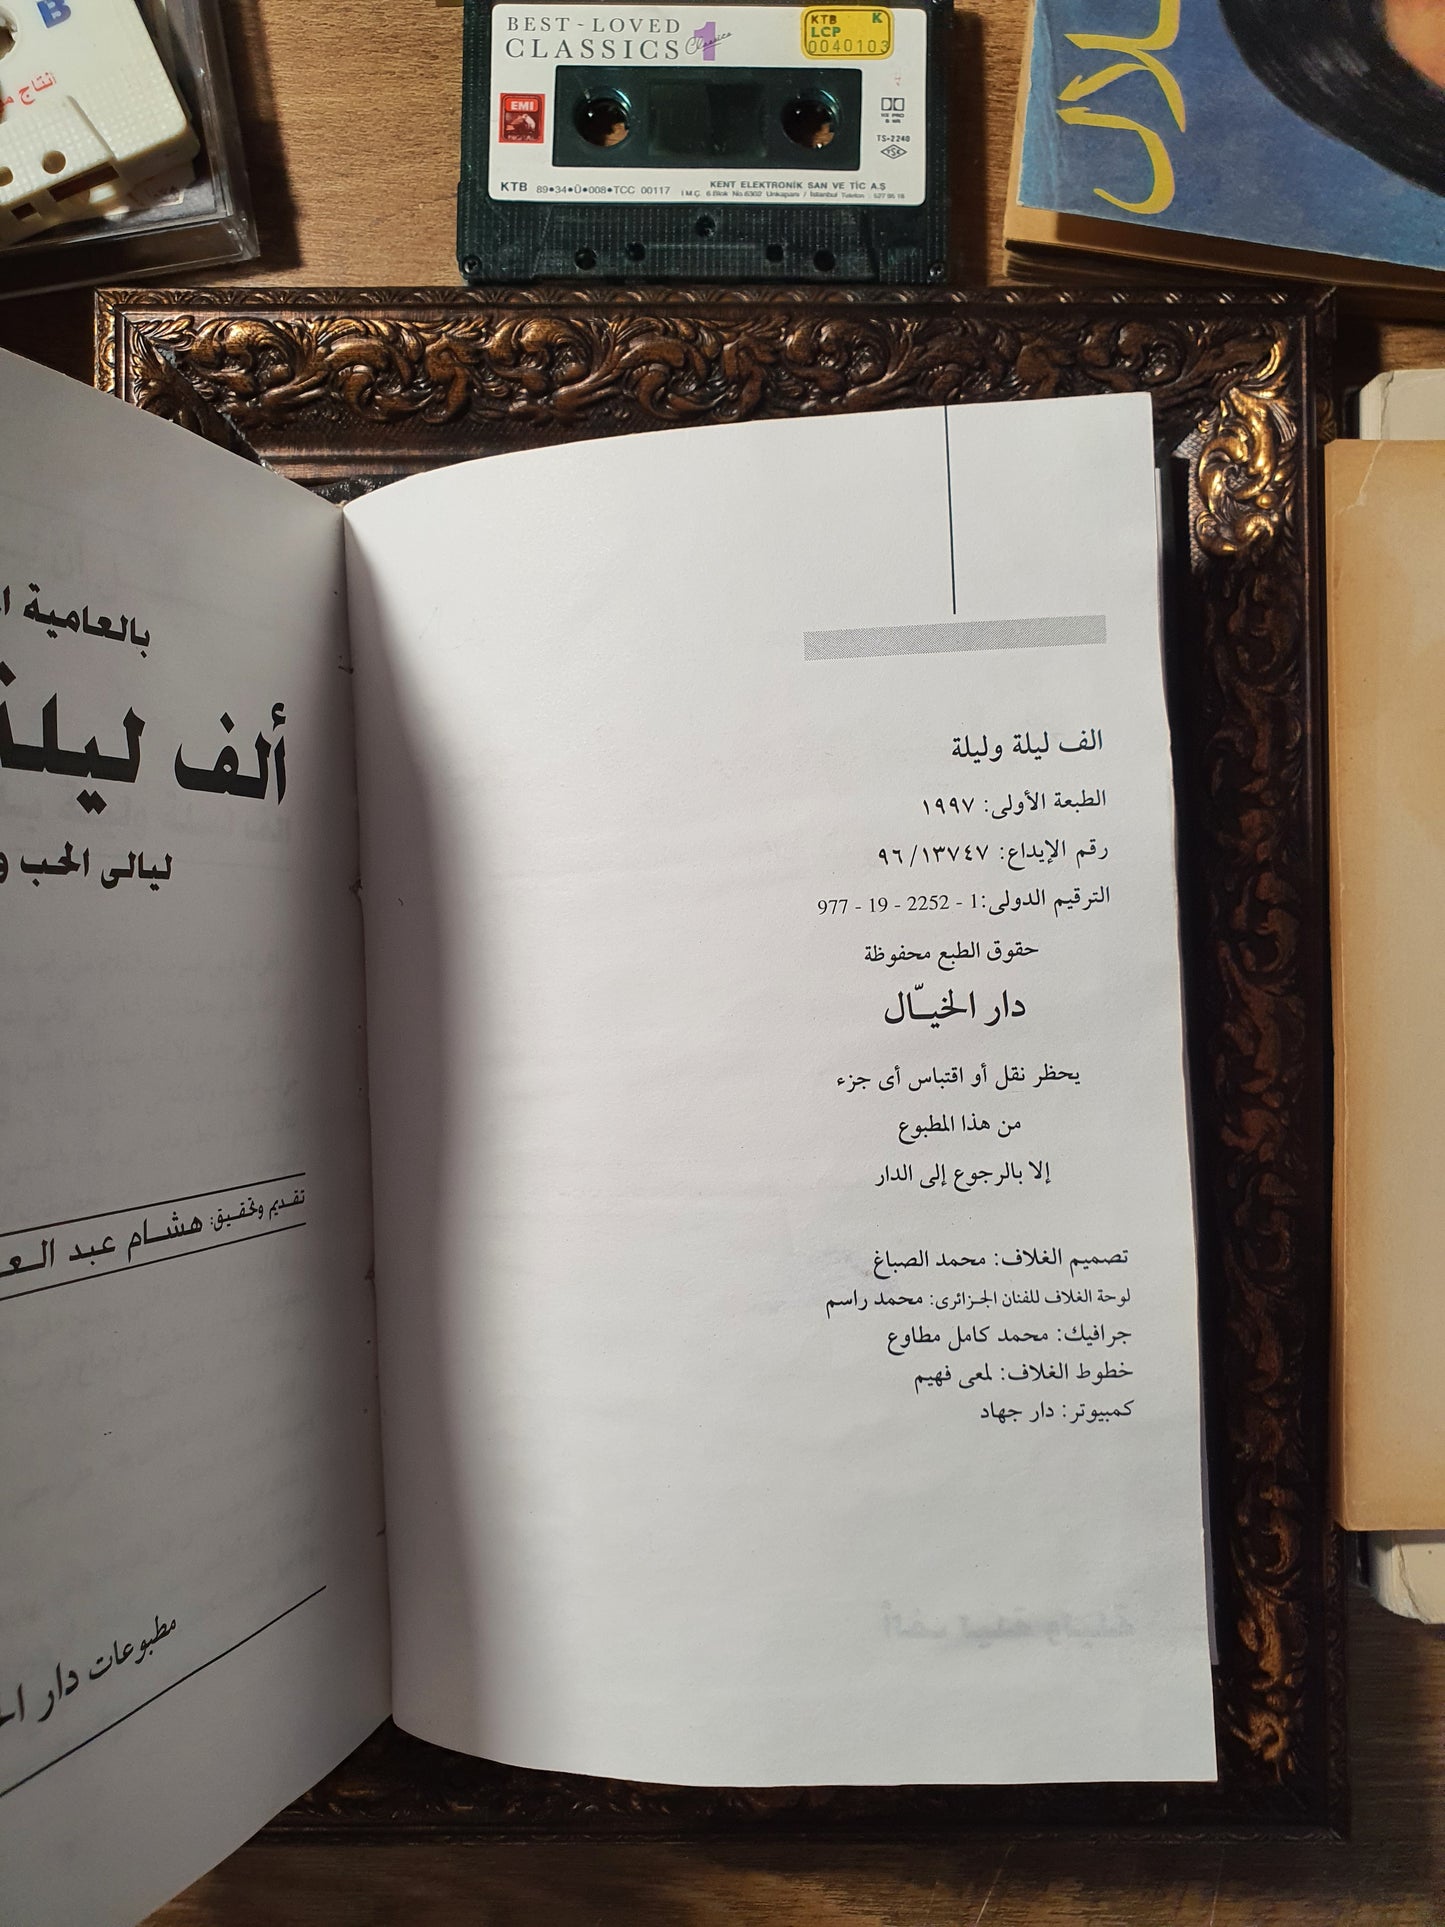 B
BEST - LOVED
CLASSICS 1
Classics
KTB K
LCP
0040103
EMI
TS-2240
KTB 89•34•Ü•008•TCC 00117
KENT ELEKTRONİK SAN VE TİC A.Ş
I.M.Ç. 6.Blok No.6302 Unkapanı / İstanbul Telefon : 527 95 18
بالعامية
ألف ليلة
ليالى الحب
تقديم وتحقيق: هشام عبد
مطبوعات دار
الف ليلة وليلة
الطبعة الأولى: ١٩٩٧
رقم الإيداع: ٩٦/١٣٧٤٧
الترقيم الدولى: 977 - 19 - 2252 - 1
حقوق الطبع محفوظة
دار الخيـّال
يحظر نقل أو اقتباس أى جزء
من هذا المطبوع
إلا بالرجوع إلى الدار
تصميم الغلاف: محمد الصباغ
لوحة الغلاف للفنان الجزائرى: محمد راسم
جرافيك: محمد كامل مطاوع
خطوط الغلاف: لمعى فهيم
كمبيوتر: دار جهاد